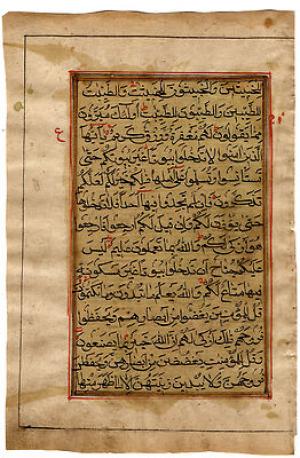 للخبيثين والخبيثون للخبيثت والطيبت
للطيبين والطيبون للطيبت اولئك مبرؤن
مما يقولون لهم مغفرة ورزق كريم يايها
الذين امنوا لا تدخلوا بيوتا غير بيوتكم حتى
تستانسوا وتسلموا على اهلها ذلكم خير لكم لعلكم
تذكرون فان لم تجدوا فيها احدا فلا تدخلوها
حتى يؤذن لكم وان قيل لكم ارجعوا فارجعوا
هو ازكى لكم والله بما تعملون عليم ليس
عليكم جناح ان تدخلوا بيوتا غير مسكونة
فيها متاع لكم والله يعلم ما تبدون وما تكتمون
قل للمؤمنين يغضوا من ابصارهم ويحفظوا
فروجهم ذلك ازكى لهم ان الله خبير بما يصنعون
وقل للمؤمنت يغضضن من ابصارهن ويحفظن
فروجهن ولا يبدين زينتهن الا ما ظهر منها
ع